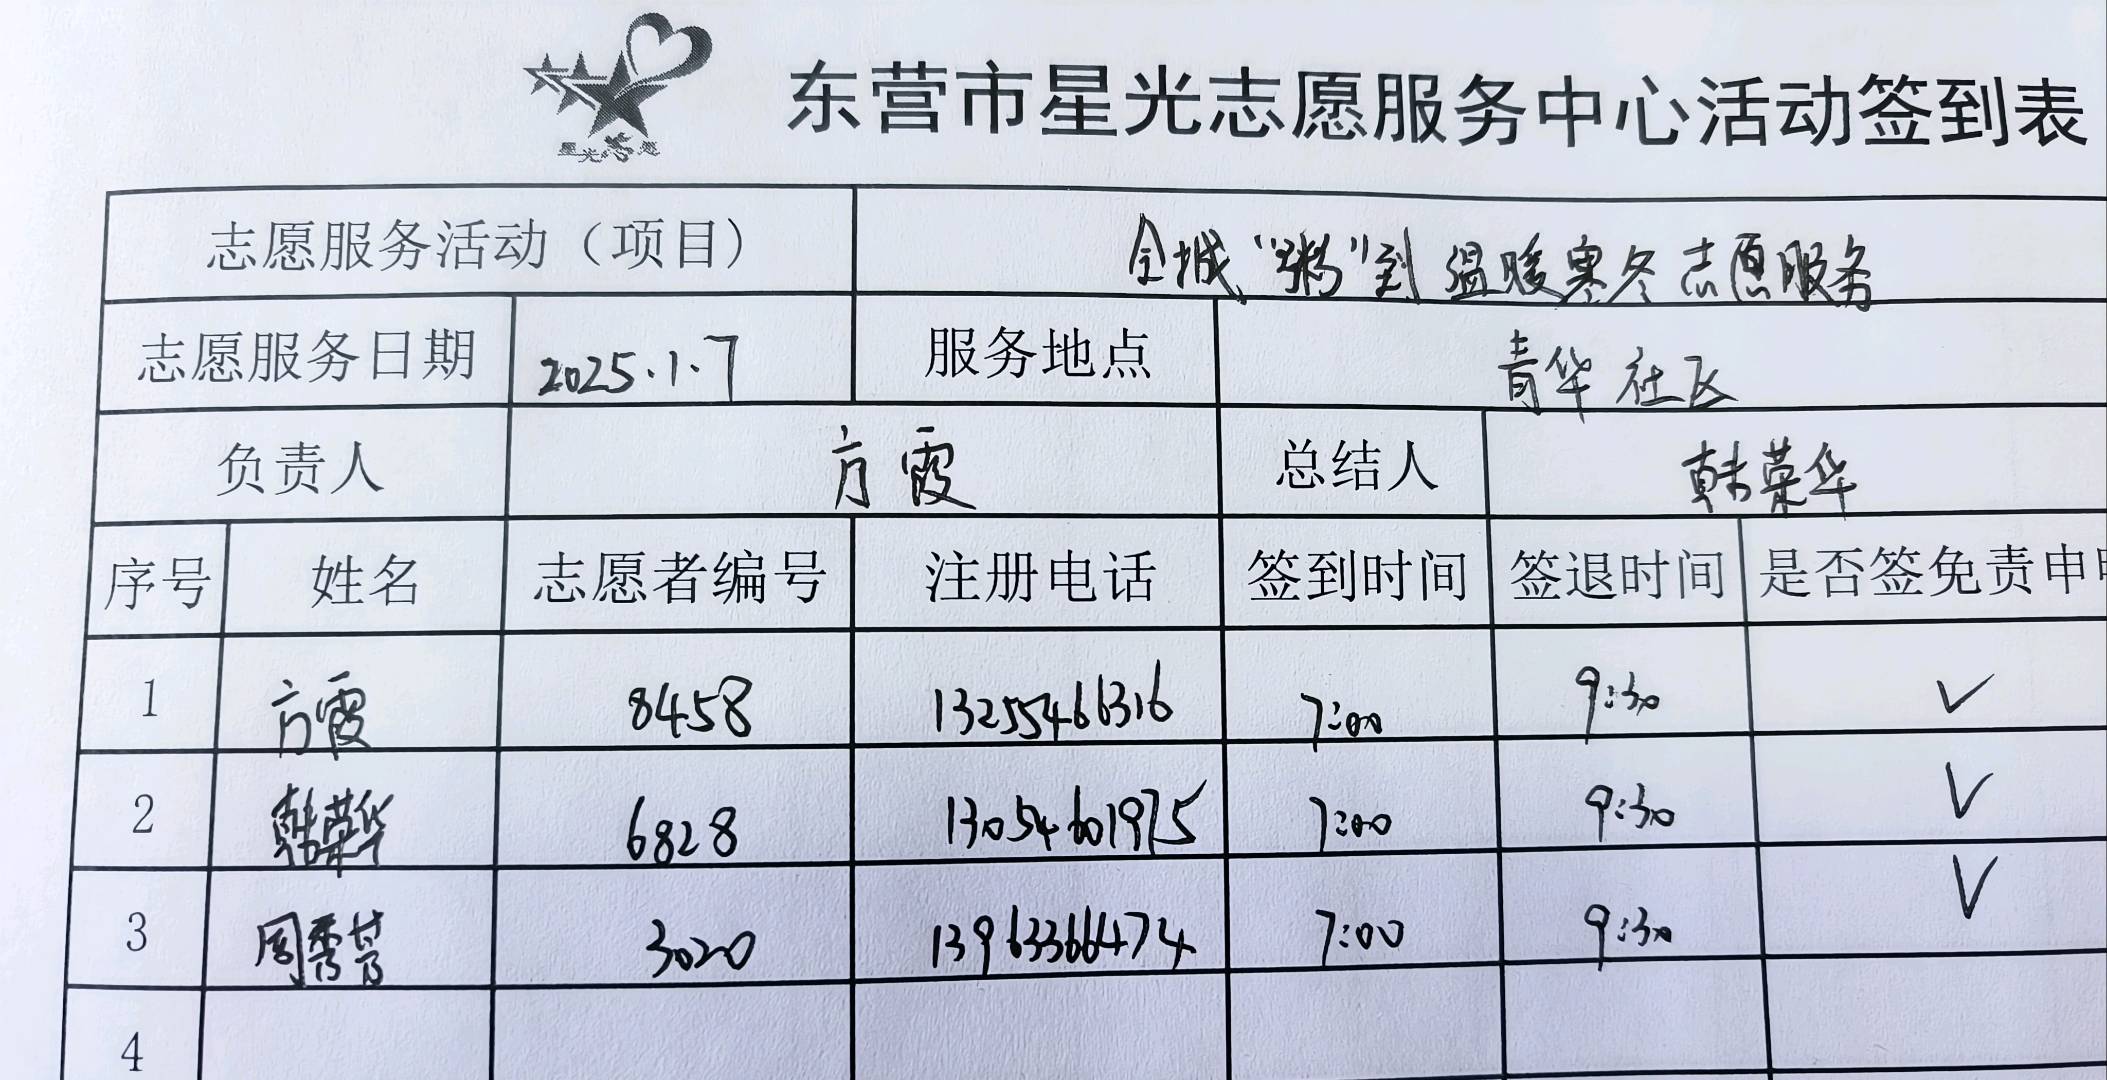 星光志愿
东营市星光志愿服务中心活动签到表
志愿服务活动（项目） 全城“粥”到 温暖寒冬志愿服务
志愿服务日期 2025.1.7 服务地点 青华社区
负责人 方霞 总结人 韩荣华
序号 姓名 志愿者编号 注册电话 签到时间 签退时间 是否签免责申明
1 方霞 8458 13255466316 7:00 9:30 ✓
2 韩荣华 6828 13054601975 7:00 9:30 ✓
3 周秀芳 3020 13963366474 7:00 9:30 ✓
4